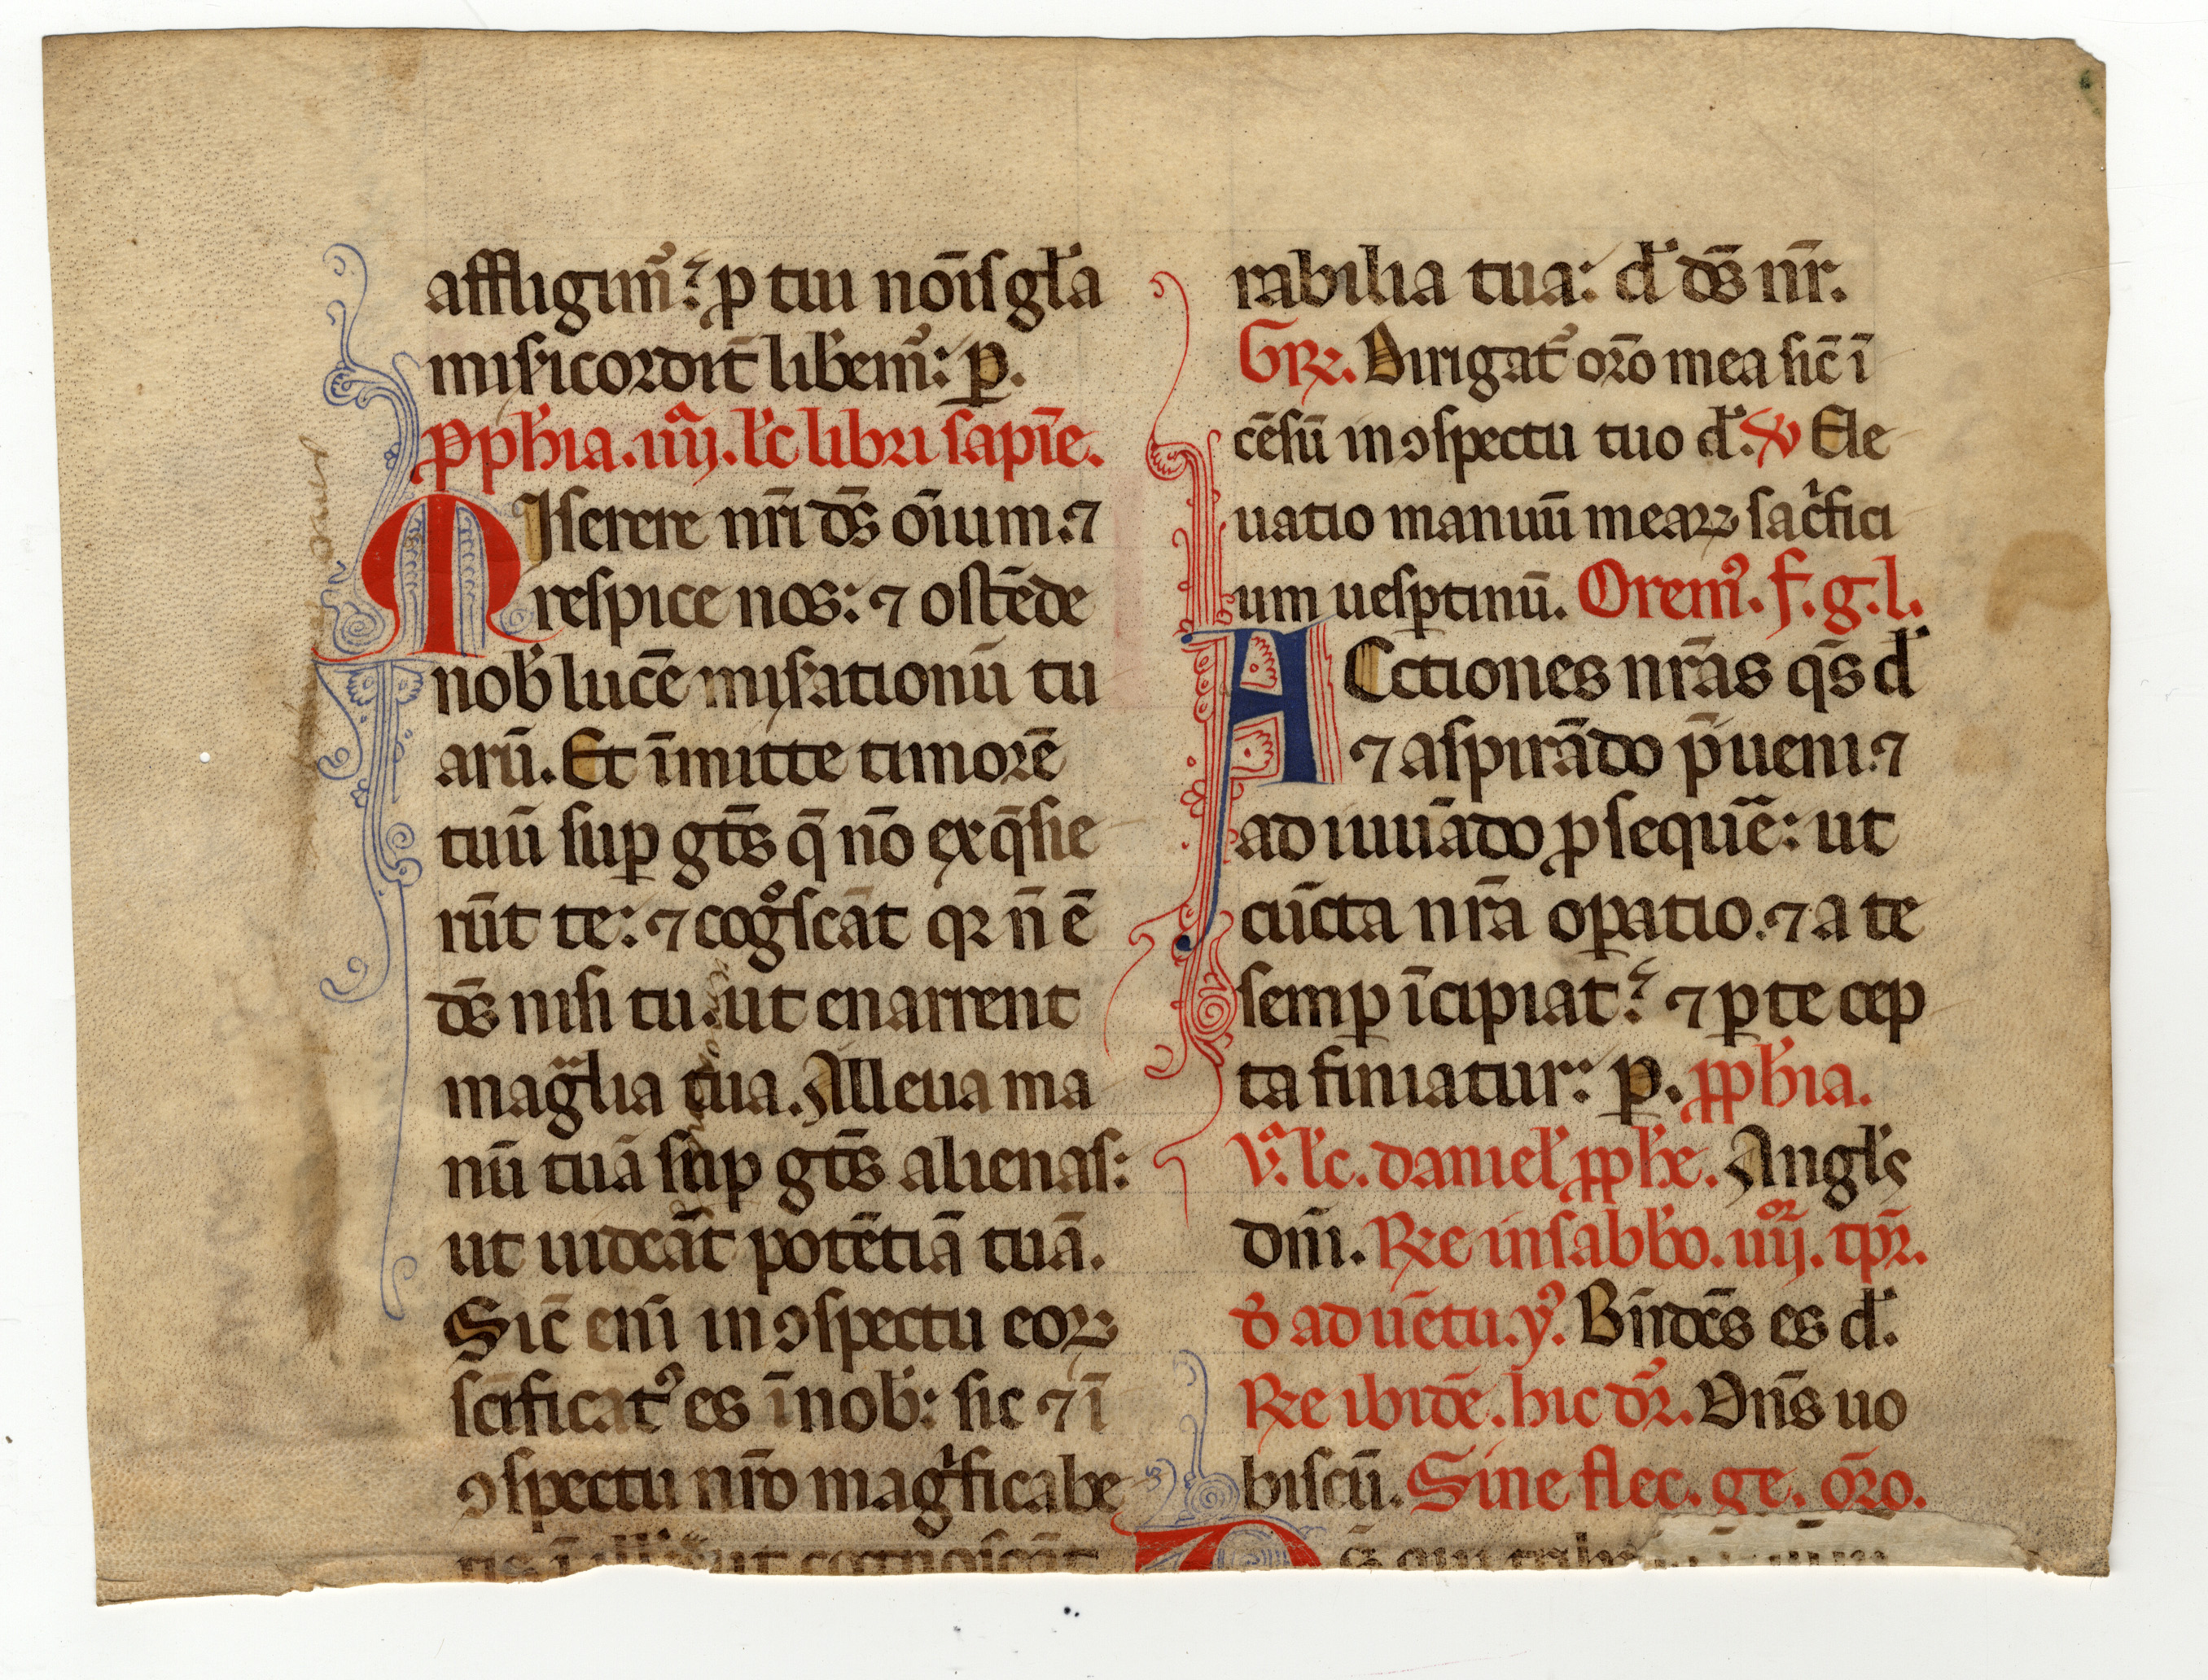 affligim᷒: ꝑ tui nōis gl̃a
misicordit̃ lib̃em᷒: ꝑ.
ꝓph̃ia. iiij. lc̃ libri sapīe.
MIserere nr̃i dS̄ oīum. ⁊
respice nos: ⁊ ostēde
nob̃ lucē misationū tu
arū. Et īmitte timorē
tuū suꝑ gtēs q̄ nō exq̄sie
rūt te: ⁊ cogͦscāt qꝛ n̄ ē
ds̄ nisi tu. ut enarrent
mag̃lia tua. Alleua ma
nū tuā suꝑ gtēs alienas:
ut uideāt potētiā tuā.
Sic̄ enī in ꝯspectu eoꝝ
sc̄ificat᷒ es ī nob̃: sic ⁊ ī
ꝯspectu nr̄o mag̃ficabe
ris ī illis ut cognoscāt
rabilia tua: d̃ ds̄ nr̄.
Gꝝ. Dirigat᷒ or̄o mea sic̄ ī
cēsū in ꝯspectu tuo d̃. ℣ Ele
uatio manuū meaꝝ sac̃fici
um uesꝑtinū. Orem᷒. f. g. l.
ACctiones nr̄as qs̄ d̃
⁊ aspirādo p̄ueni. ⁊
adiuuādo ꝓsequē: ut
cūcta nr̄a oꝑatio. ⁊ a te
semꝑ īcipiat᷒: ⁊ ꝑ te cep
ta finiatur: ꝑ. ꝓph̃ia.
v.ᵃ lc̃. daniel̃ ꝓph̃e. Angl̃s
dn̄i. Rꝝe in sabb̃o. iiij.ᵒʳ tꝑꝝ.
d̃ aduētu. y᷒. Bn̄dc̄s es d̃.
Rꝝe ibidē. hic dr̄. Dn̄s uo
biscū. Sine flec. ge. or̄o.
S̄ qui trib